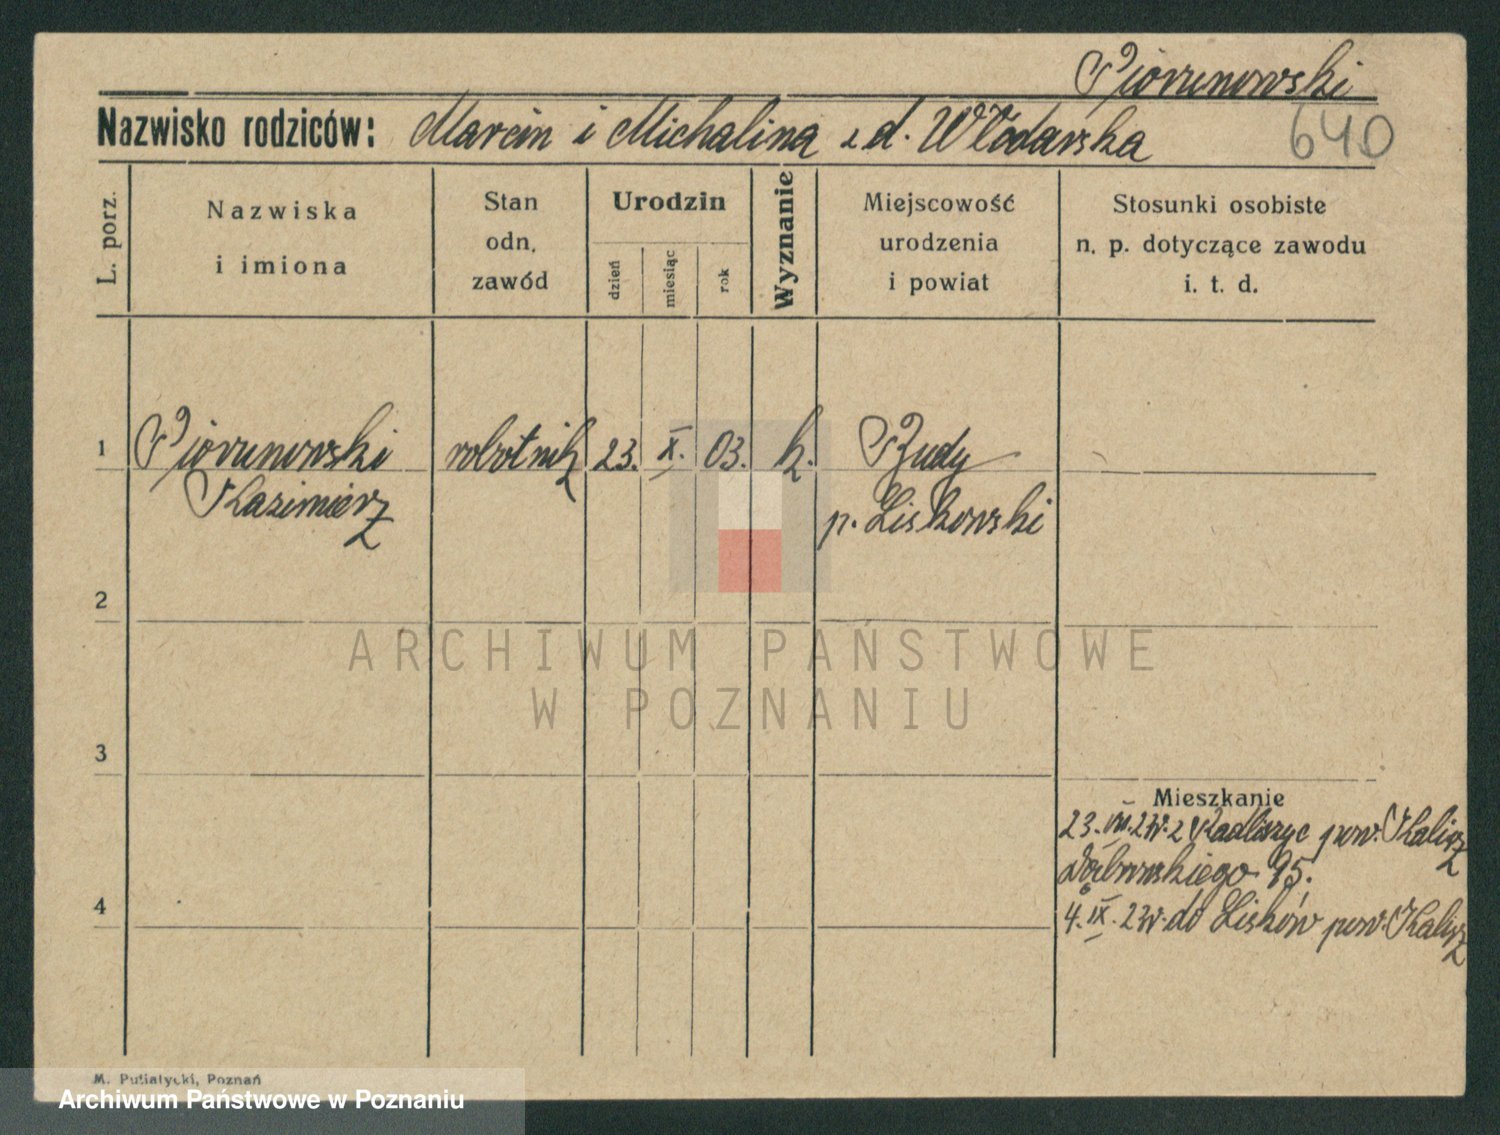 Piorunowski
Nazwisko rodziców: Marcin i Michalina z d. Włodarska
640
L. porz.
Nazwiska
i imiona
Stan
odn.
zawód
Urodzin
dzień
miesiąc
rok
Wyznanie
Miejscowość
urodzenia
i powiat
Stosunki osobiste
n. p. dotyczące zawodu
i. t. d.
1 Piorunowski robotnik 23. X. 03. k. Rudy
Kazimierz p. Liskowski
2
3
4
Mieszkanie
23. VII. 23r. z pow. Kalisz
Dąbrowskiego 95.
4. IX. 23r. do Lisków pow. Kalisz
M. Putiatycki, Poznań
ARCHIWUM PAŃSTWOWE
W POZNANIU
Archiwum Państwowe w Poznaniu